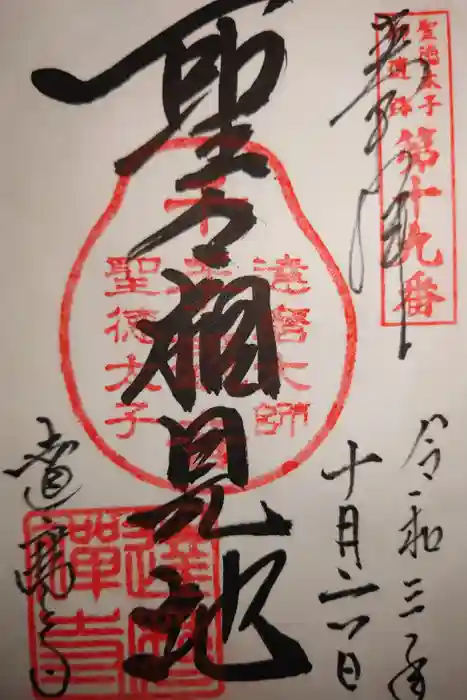 聖徳太子
御遺跡
第十九番
奉拝
令和三年
十月二十八日
達磨大師
聖徳太子
聖々相見地
達磨寺
達磨禅寺